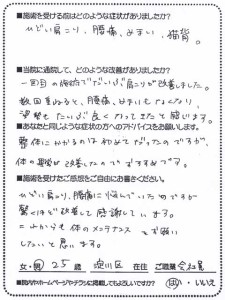 ■施術を受ける前はどのような症状がありましたか?
ひどい肩こり、腰痛、めまい、猫背。
■当院に通院して、どのような改善がありましたか?
一回目の施術でだいぶ肩こりが改善しました。
数回重ねると、腰痛、めまいもなくなり、
姿勢もだいぶ良くなってきたと感じます。
■あなたと同じような症状の方へのアドバイスをお願いします。
整体にかかるのは初めてだったのですが、
体の 改善したのでおすすめです。
■施術を受けたご感想をご自由にお書きください。
ひどい肩こり、腰痛に悩んでいたのですが
驚くほど改善して感謝しています。
これからも体のメンテナンスをお願い
したいと思います。
女・男 25歳 淀川区 在住 ご職業 会社員
■院内やホームページやチラシに掲載してもよろしいですか?
はい・いいえ